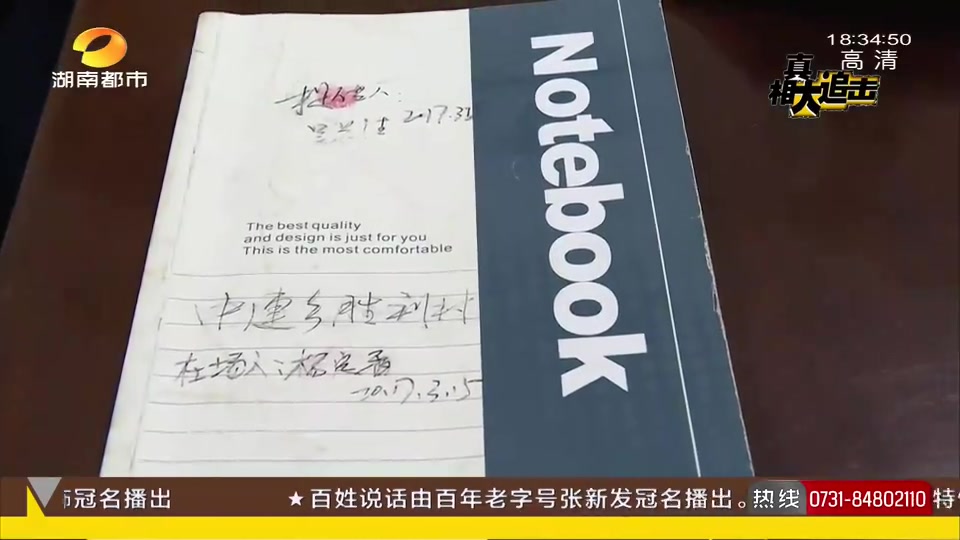 湖南都市
18:34:50
高清
真相大追击
2017.3.15
Notebook
The best quality
and design is just for you
This is the most comfortable
中连乡胜利村
在场人:
2017.3.15
冠名播出
★百姓说话由百年老字号张新发冠名播出。
热线 0731-84802110